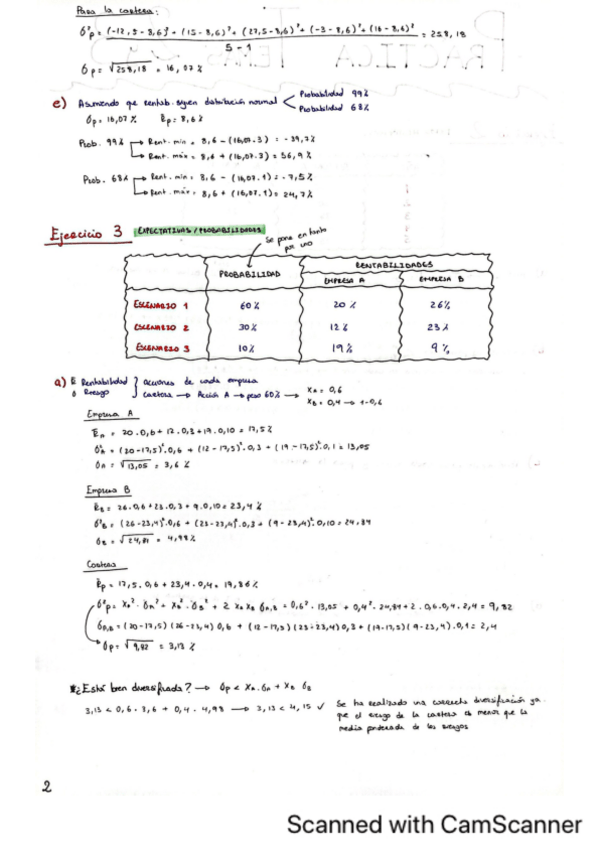 Para la cartera:
σ²p = (-12,5 - 8,6)² + (15 - 8,6)² + (27,5 - 8,6)² + (-3 - 8,6)² + (16 - 8,6)² = 258,18
5 - 1
σp = √258,18 = 16,07 %
e) Asumiendo que rentab. siguen distribución normal
Probabilidad 99%
Probabilidad 68%
σp = 16,07 % R̄p = 8,6 %
Prob. 99% → Rent. min = 8,6 - (16,07 · 3) = -39,7%
→ Rent. máx = 8,6 + (16,07 · 3) = 56,9 %
Prob. 68% → Rent. min. = 8,6 - (16,07 · 1) = -7,5%
→ Rent. máx. = 8,6 + (16,07 · 1) = 24,7%
Ejercicio 3 EXPECTATIVAS / PROBABILIDADES
Se pone en tanto por uno
PROBABILIDAD RENTABILIDADES
EMPRESA A EMPRESA B
ESCENARIO 1 60% 20% 26%
ESCENARIO 2 30% 12% 23%
ESCENARIO 3 10% 19% 9%
a) R̄ Rentabilidad } acciones de cada empresa
σ Riesgo } cartera → Acción A → peso 60% → XA = 0,6
XB = 0,4 → 1-0,6
Empresa A
R̄A = 20 · 0,6 + 12 · 0,3 + 19 · 0,10 = 17,5%
σ²A = (20-17,5)² · 0,6 + (12-17,5)² · 0,3 + (19-17,5)² · 0,1 = 13,05
σA = √13,05 = 3,6 %
Empresa B
R̄B = 26 · 0,6 + 23 · 0,3 + 9 · 0,10 = 23,4 %
σ²B = (26-23,4)² · 0,6 + (23-23,4)² · 0,3 + (9-23,4)² · 0,10 = 24,84
σB = √24,84 = 4,98%
Cartera
R̄p = 17,5 · 0,6 + 23,4 · 0,4 = 19,86%
σ²p = XA² · σA² + XB² · σB² + 2 XA XB σA,B = 0,6² · 13,05 + 0,4² · 24,84 + 2 · 0,6 · 0,4 · 2,4 = 9,82
σA,B = (20-17,5)(26-23,4) 0,6 + (12-17,5)(23-23,4) 0,3 + (19-17,5)(9-23,4) · 0,1 = 2,4
σp = √9,82 = 3,13 %
¿Está bien diversificada? → σp < XA · σA + XB σB
3,13 < 0,6 · 3,6 + 0,4 · 4,98 → 3,13 < 4,15 ✓
Se ha realizado una correcta diversificación ya
que el riesgo de la cartera es menor que la
media ponderada de los riesgos
2
Scanned with CamScanner